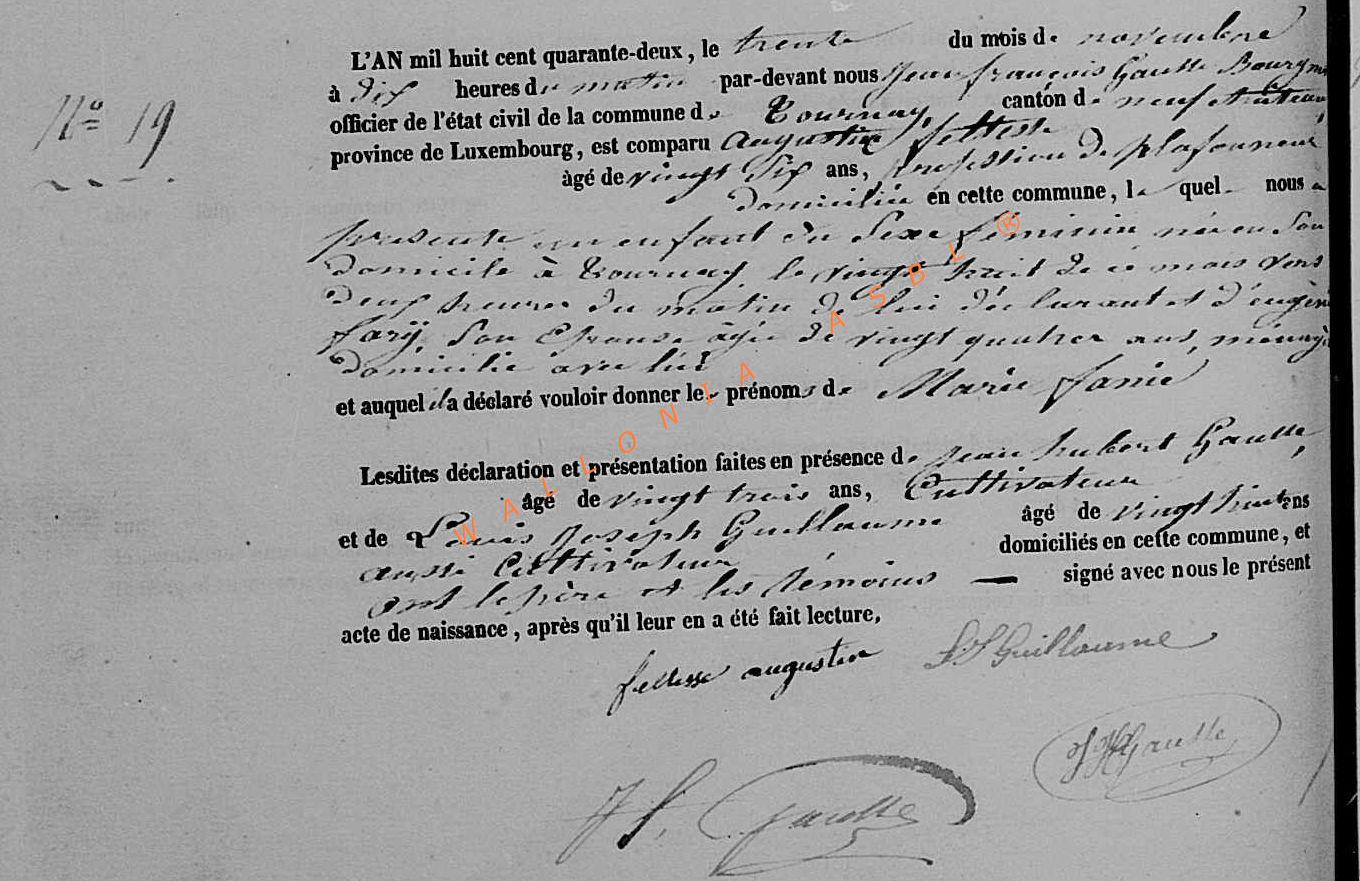 L'AN mil huit cent quarante-deux, le trente du mois de novembre
N° 19
à dix heures du matin par-devant nous Jean françois Gausse Bourgm
officier de l'état civil de la commune de Tournay, canton de neufchateau,
province de Luxembourg, est comparu Augustin felesse
âgé de vingt six ans, profession de plafonneur
domicilié en cette commune, le quel nous a
présenté un enfant du sexe féminin née en son
domicile à Tournay, le vingt huit de ce mois vers
deux heures du matin de lui déclarant et d'eugén
fary, son Epouse âgée de vingt quatre ans, ménagè
domicilié avec lui
et auquel il a déclaré vouloir donner les prénoms de Marie fanie
Lesdites déclaration et présentation faites en présence de jean hubert Gausse,
âgé de vingt trois ans, Cultivateur
et de Louis Joseph Guillaume âgé de vingt huit ans
aussi Cultivateur domiciliés en cette commune, et
ont le père et les témoins — signé avec nous le présent
acte de naissance, après qu'il leur en a été fait lecture,
felesse augustin LJ Guillaume
JH Gausse
J f. Gausse
WALLONIA ASBL ®